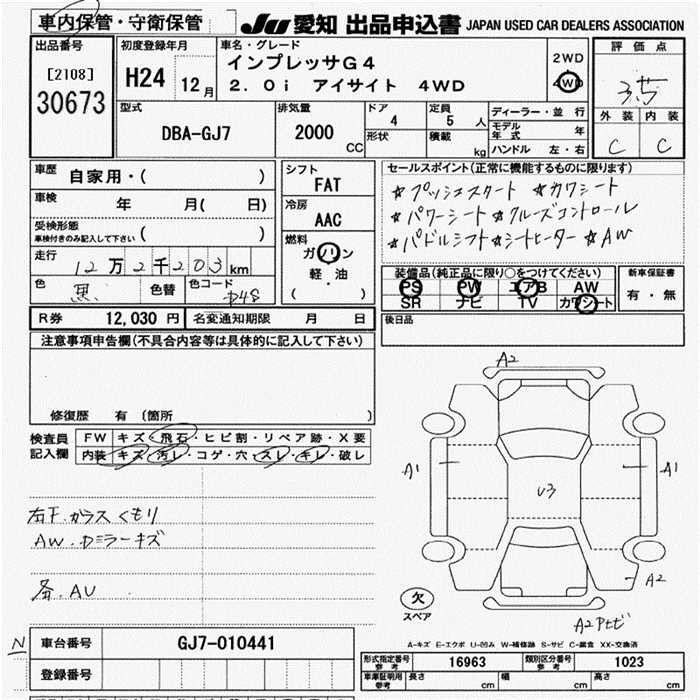 車内保管・守衛保管 JU 愛知 出品申込書 JAPAN USED CAR DEALERS ASSOCIATION
出品番号 初度登録年月 車名・グレード 評価点
[2108] H24 12月 インプレッサG4 2WD 3.5
30673 2.0i アイサイト 4WD 4WD
外装 内装
型式 排気量 ドア 定員 ディーラー・並行
DBA-GJ7 2000 CC 4 5 人 モデル年式 年 C C
形状 積載 kg ハンドル 左・右
車歴 自家用・( ) シフト セールスポイント(正常に機能するものに限ります)
FAT ☆プッシュスタート ☆カワシート
車検 年 月( 日) 冷房 ☆パワーシート ☆クルーズコントロール
受検形態 AAC ☆パドルシフト ☆シートヒーター ☆AW
車検付きのみ記入して下さい ( )
走行 12万2千203km 燃料 ガソリン 装備品(純正品に限り○をつけてください) 新車保証書
色 黒 色替 色コード D4S 軽・油 PS PW エアB AW 有・無
( ) SR ナビ TV カワシート
R券 12,030 円 名変通知期限 月 日 後日品
注意事項申告欄(不具合内容等は具体的に記入して下さい)
A2
修復歴 有 〔箇所 〕
検査員 FW キズ・飛石・ヒビ割・リペア跡・X要
記入欄 内装 キズ・汚レ・コゲ・穴・スレ・キレ・破レ
A1 A1
U3
右下.ガラス くもり
AW.Dミラーキズ
A2
各.AU
欠
スペア
A2
A-キズ E-エクボ U-凹み W-補修跡 S-サビ C-腐食 XX-交換済
N 車台番号 GJ7-010441
型式指定番号 参考 16963 類別区分番号 参考 1023
登録番号 車庫証明用 参考 長さ cm 幅 cm 高さ cm